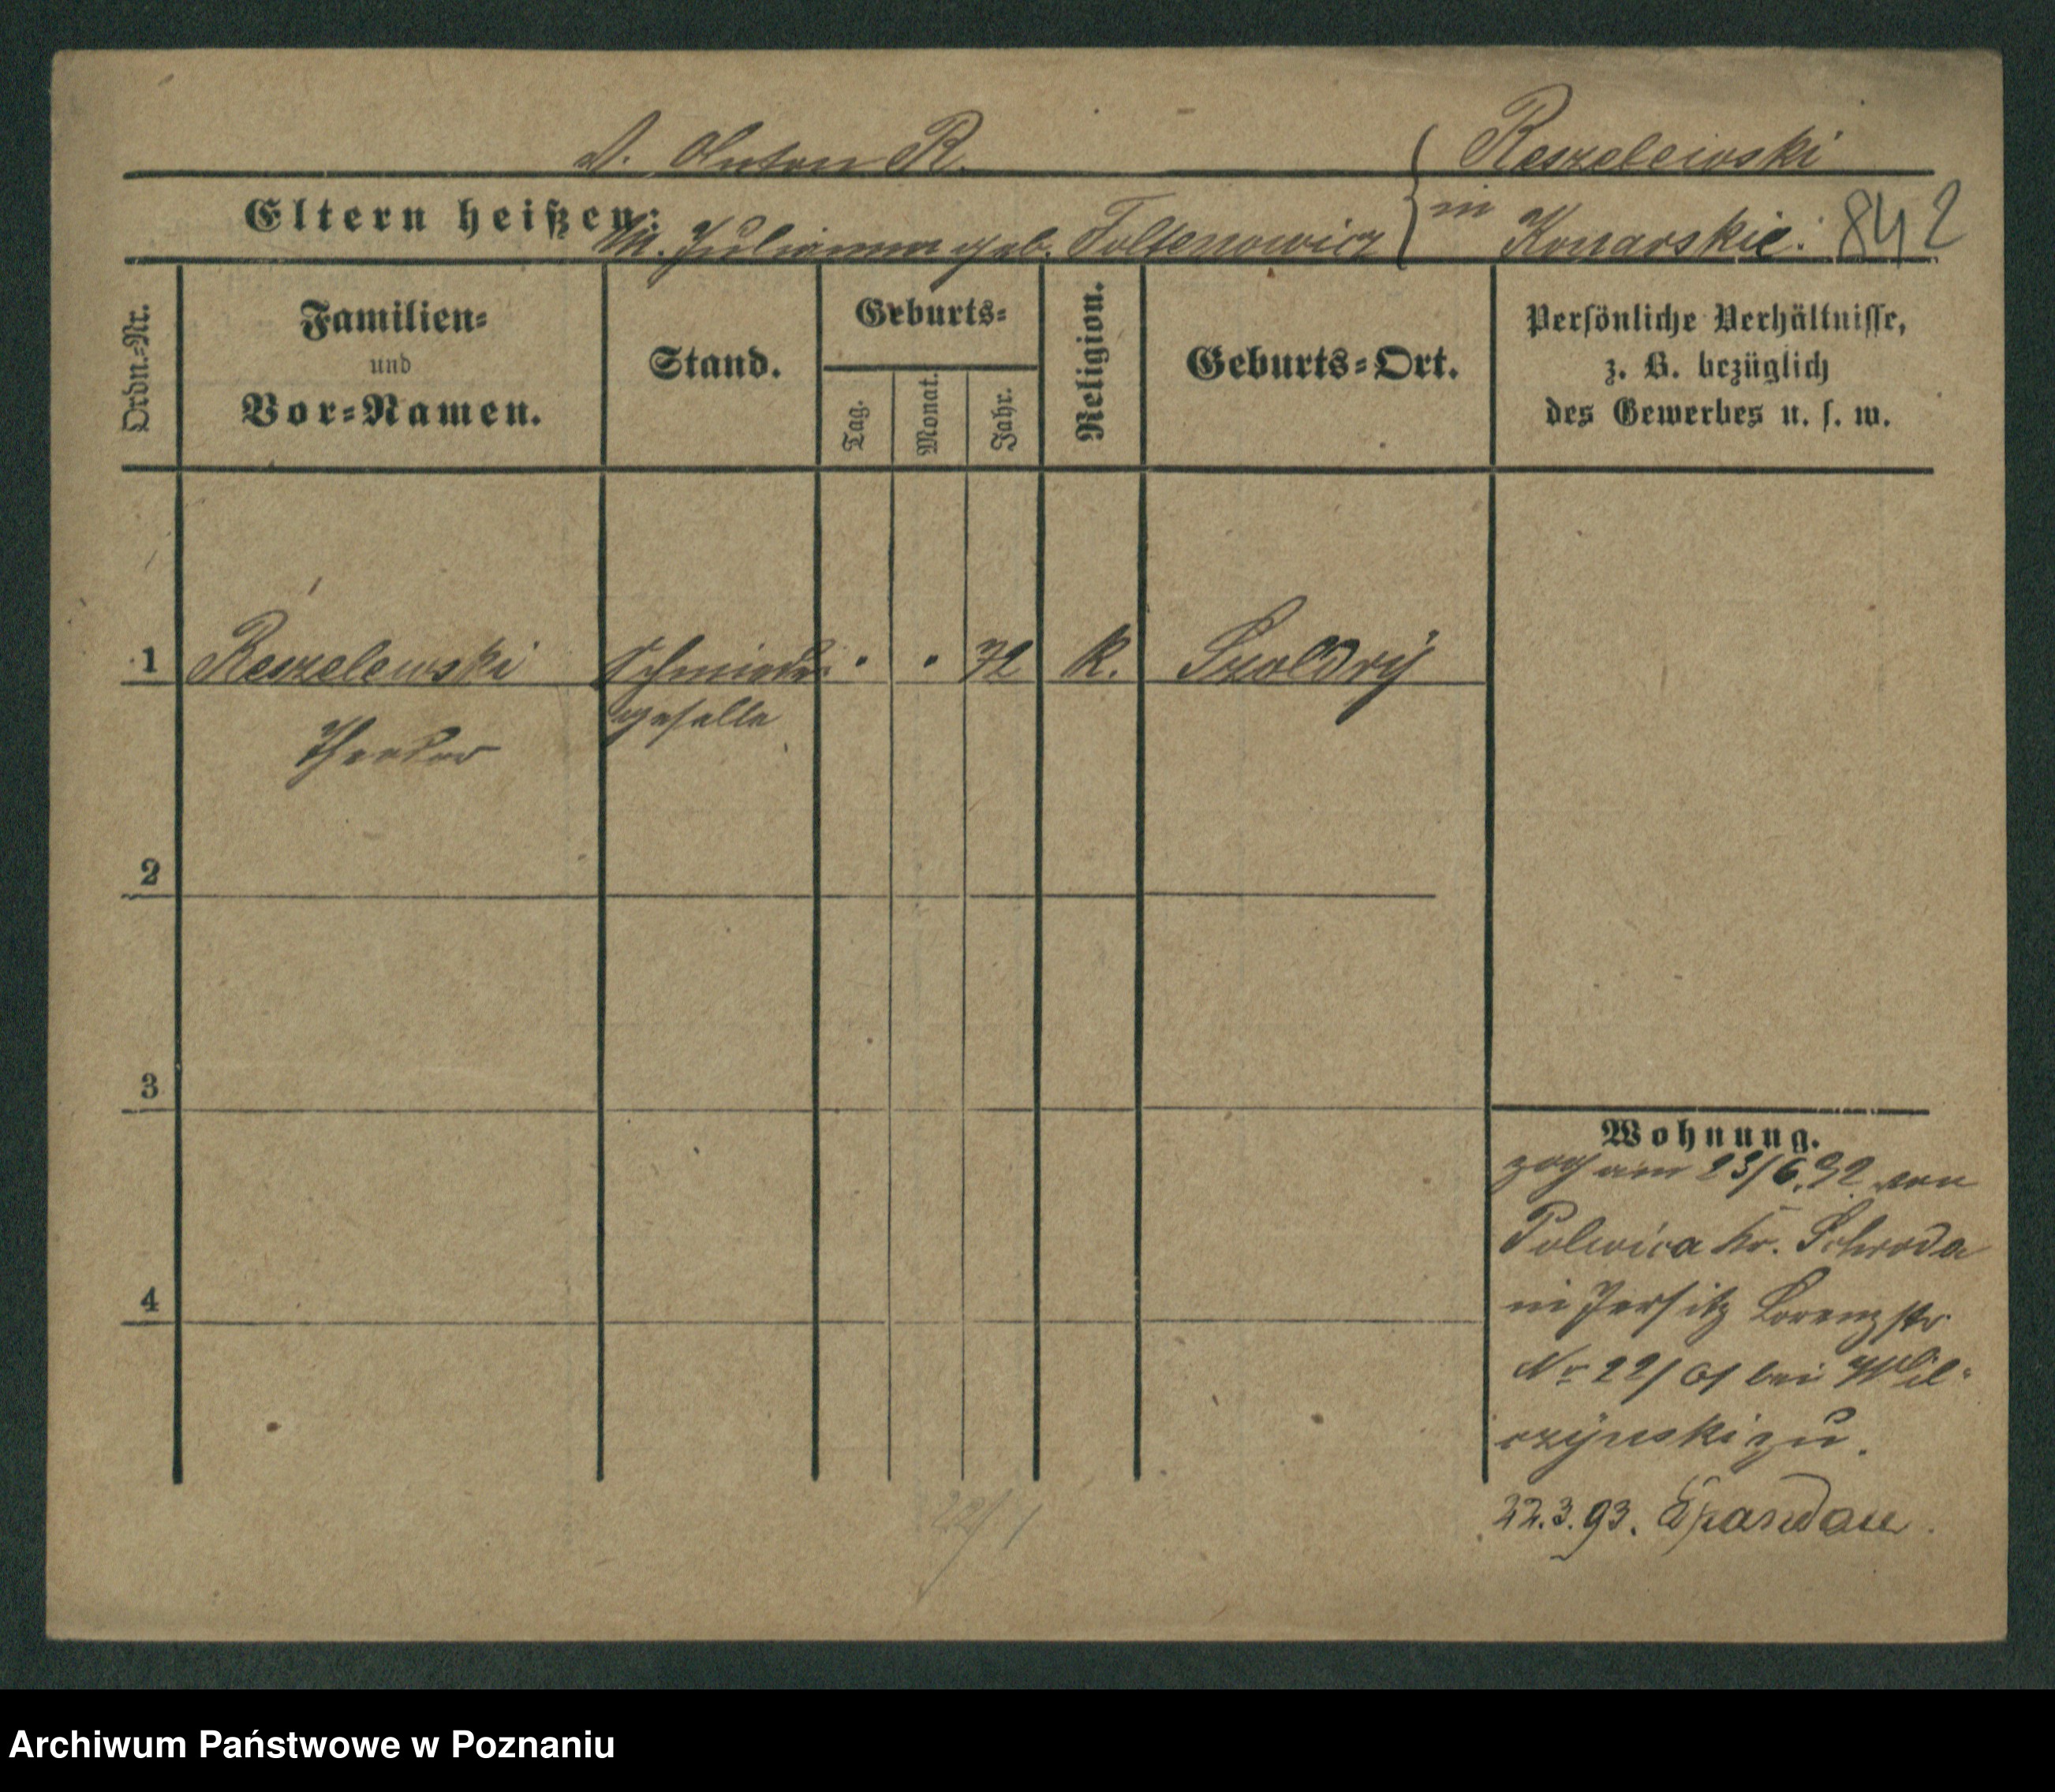 V. Anton R. Reszelewski
Eltern heißen:
M. Julianna geb. Foltenowicz in Konarskie. 842
Ordn.-Nr.
Familien-
und
Vor-Namen.
Stand.
Geburts-
Tag.
Monat.
Jahr.
Religion.
Geburts-Ort.
Persönliche Verhältnisse,
z. B. bezüglich
des Gewerbes u. s. w.
1 Reszelewski Schmiede- " " 72 K. Szoldry
geselle
Theodor
2
3
4
Wohnung.
zog am 23/6.92 von
Polwica Kr. Schroda
in Jersitz Lorenzstr
Nr 22/ bei Wil-
czynski zu.
22.3.93. Spandau.
Archiwum Państwowe w Poznaniu